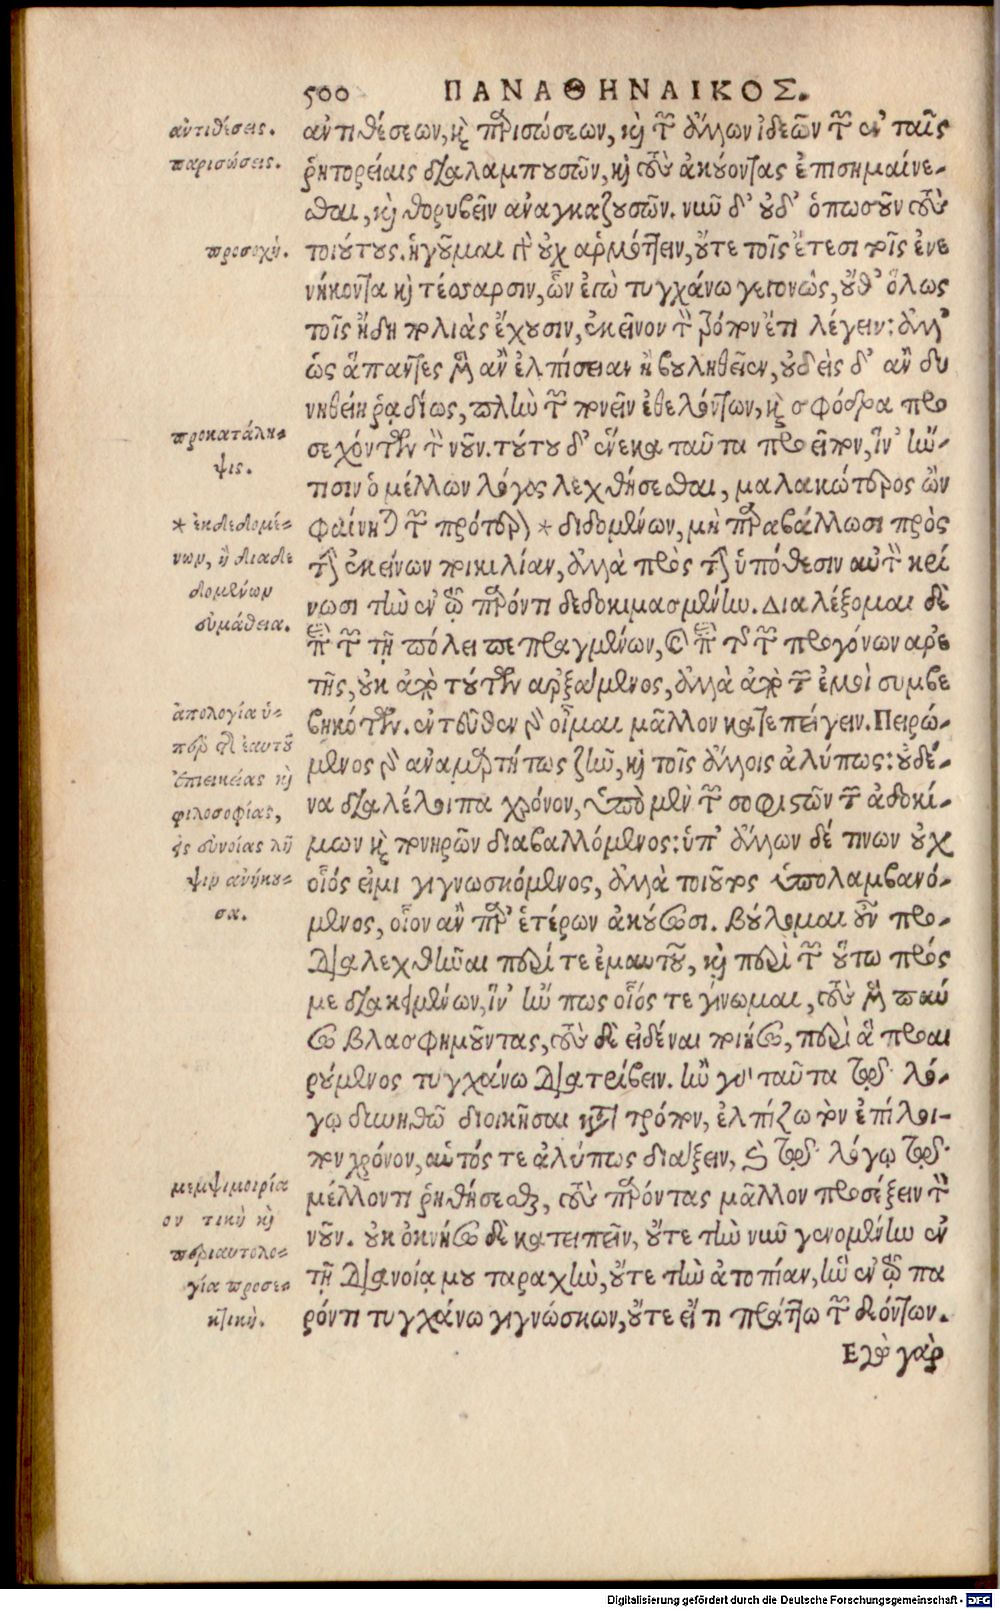 500 ΠΑΝΑΘΗΝΑΙΚΟΣ.
ἀντιθέσεων, καὶ παρισώσεων, καὶ τῶν ἄλλων ἰδεῶν τῶν ἐν ταῖς
ῥητορείαις διαλαμπουσῶν, καὶ τοὺς ἀκούοντας ἐπισημαίνε-
σθαι, καὶ θορυβεῖν ἀναγκαζουσῶν. νῦν δ' οὐδ' ὁπωσοῦν τοὺς
τοιούτους. ἡγοῦμαι γὰρ οὐχ ἁρμόττειν, οὔτε τοῖς ἔτεσι τοῖς ἐνε
νήκοντα καὶ τέσσαρσιν, ὧν ἐγὼ τυγχάνω γεγονὼς, οὔθ' ὅλως
τοῖς ἤδη πολιὰς ἔχουσιν, ἐκεῖνον τὸν τρόπον ἔτι λέγειν: ἀλλ'
ὡς ἅπαντες μὲν ἂν ἐλπίσειαν εἰ βουληθεῖεν, οὐδεὶς δ' ἂν δυ
νηθείη ῥᾳδίως, πλὴν τῶν πονεῖν ἐθελόντων, καὶ σφόδρα προ
σεχόντων τὸν νοῦν. τούτου δ' ἕνεκα ταῦτα προεῖπον, ἵν' ἤν
τισιν ὁ μέλλων λόγος λεχθήσεσθαι, μαλακώτερος ὢν
φαίνηται τῶν πρότερον * διδομένων, μὴ παραβάλλωσι πρὸς
τὴν ἐκείνων ποικιλίαν, ἀλλὰ πρὸς τὴν ὑπόθεσιν αὐτὸν κρί
νωσι τὴν ἐν τῷ παρόντι δεδοκιμασμένην. Διαλέξομαι δὲ
περὶ τῶν τῇ πόλει πεπραγμένων, καὶ περὶ τῆς τῶν προγόνων ἀρε
τῆς, οὐκ ἀπὸ τούτων ἀρξάμενος, ἀλλὰ ἀπὸ τῶν ἐμοὶ συμβε
βηκότων. ἐντεῦθεν γὰρ οἶμαι μᾶλλον κατεπείγειν. Πειρώ-
μενος γὰρ ἀναμαρτήτως ζῆν, καὶ τοῖς ἄλλοις ἀλύπως: οὐδέ-
να διαλέλοιπα χρόνον, ὑπὸ μὲν τῶν σοφιστῶν τῶν ἀδοκί-
μων καὶ πονηρῶν διαβαλλόμενος: ὑπ' ἄλλων δέ τινων οὐχ
οἷός εἰμι γιγνωσκόμενος, ἀλλὰ τοιοῦτος ὑπολαμβανό-
μενος, οἷον ἂν παρ' ἑτέρων ἀκούσωσι. βούλομαι οὖν προ-
διαλεχθῆναι περί τε ἐμαυτοῦ, καὶ περὶ τῶν οὕτω πρός
με διακειμένων, ἵν' ἤν πως οἷός τε γένωμαι, τοὺς μὲν παύ
σω βλασφημοῦντας, τοὺς δὲ εἰδέναι ποιήσω, περὶ ἃ προαι
ρούμενος τυγχάνω διατρίβειν. ἢν γὰρ ταῦτα τῷ λό-
γῳ δυνηθῶ διοικῆσαι κατὰ τρόπον, ἐλπίζω τὸν ἐπίλοι-
πον χρόνον, αὐτός τε ἀλύπως διάξειν, καὶ τῷ λόγῳ τῷ
μέλλοντι ῥηθήσεσθαι, τοὺς παρόντας μᾶλλον προσέξειν τὸν
νοῦν. οὐκ ὀκνήσω δὲ κατειπεῖν, οὔτε τὴν νῦν γενομένην ἐν
τῇ διανοίᾳ μου ταραχὴν, οὔτε τὴν ἀτοπίαν, ἣν ἐν τῷ πα
ρόντι τυγχάνω γιγνώσκων, οὔτε εἴ τι πράττω τῶν δεόντων.
Ἐγὼ γὰρ
ἀντιθέσεις.
παρισώσεις.
προσοχή.
προκατάλη-
ψις.
* ἐκδεδομέ-
νων, ἢ διαδε
δομένων
εὐμάθεια.
ἀπολογία ὑ-
πὲρ τῆς ἑαυτοῦ
ἐπιεικείας καὶ
φιλοσοφίας,
εὐνοίας λῆ
ψιν
σα.
μεμψιμοιρία
τικὴ καὶ
περιαυτολο-
γία προσε-
κτική.
Digitalisierung gefördert durch die Deutsche Forschungsgemeinschaft - DFG